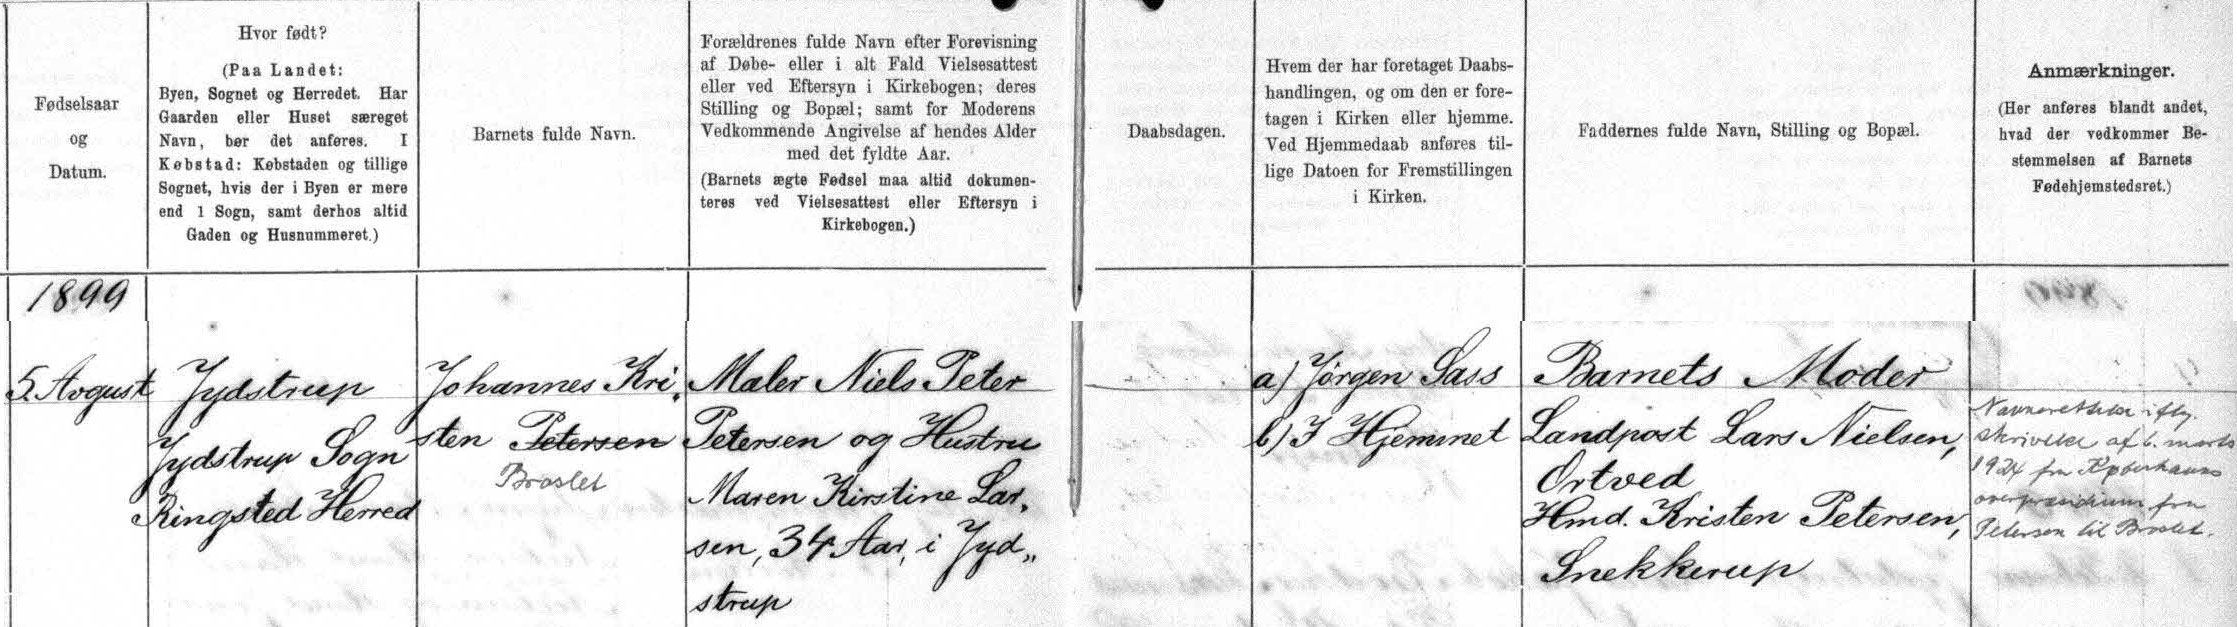 Fødselsaar
og
Datum.
Hvor født?
(Paa Landet:
Byen, Sognet og Herredet. Har
Gaarden eller Huset særeget
Navn, bør det anføres. I
Købstad: Købstaden og tillige
Sognet, hvis der i Byen er mere
end 1 Sogn, samt derhos altid
Gaden og Husnummeret.)
Barnets fulde Navn.
Forældrenes fulde Navn efter Forevisning
af Døbe- eller i alt Fald Vielsesattest
eller ved Eftersyn i Kirkebogen; deres
Stilling og Bopæl; samt for Moderens
Vedkommende Angivelse af hendes Alder
med det fyldte Aar.
(Barnets ægte Fødsel maa altid dokumen-
teres ved Vielsesattest eller Eftersyn i
Kirkebogen.)
Daabsdagen.
Hvem der har foretaget Daabs-
handlingen, og om den er fore-
tagen i Kirken eller hjemme.
Ved Hjemmedaab anføres til-
lige Datoen for Fremstillingen
i Kirken.
Faddernes fulde Navn, Stilling og Bopæl.
Anmærkninger.
(Her anføres blandt andet,
hvad der vedkommer Be-
stemmelsen af Barnets
Fødehjemstedsret.)
1899
5. Avgust
Jydstrup
Jydstrup Sogn
Ringsted Herred
Johannes Kri„
sten Petersen
Broslet
Maler Niels Peter
Petersen og Hustru
Maren Kirstine Lar„
sen, 34 Aar, i Jyd„
strup
a) Jørgen Sass
b) I Hjemmet
Barnets Moder
Landpost Lars Nielsen,
Ortved
Hmd. Kristen Petersen,
Snekkerup
Navnerettelse iflg.
skrivelse af 6. marts
1924 fra Københavns
overpræsidium fra
Petersen til Broslet.